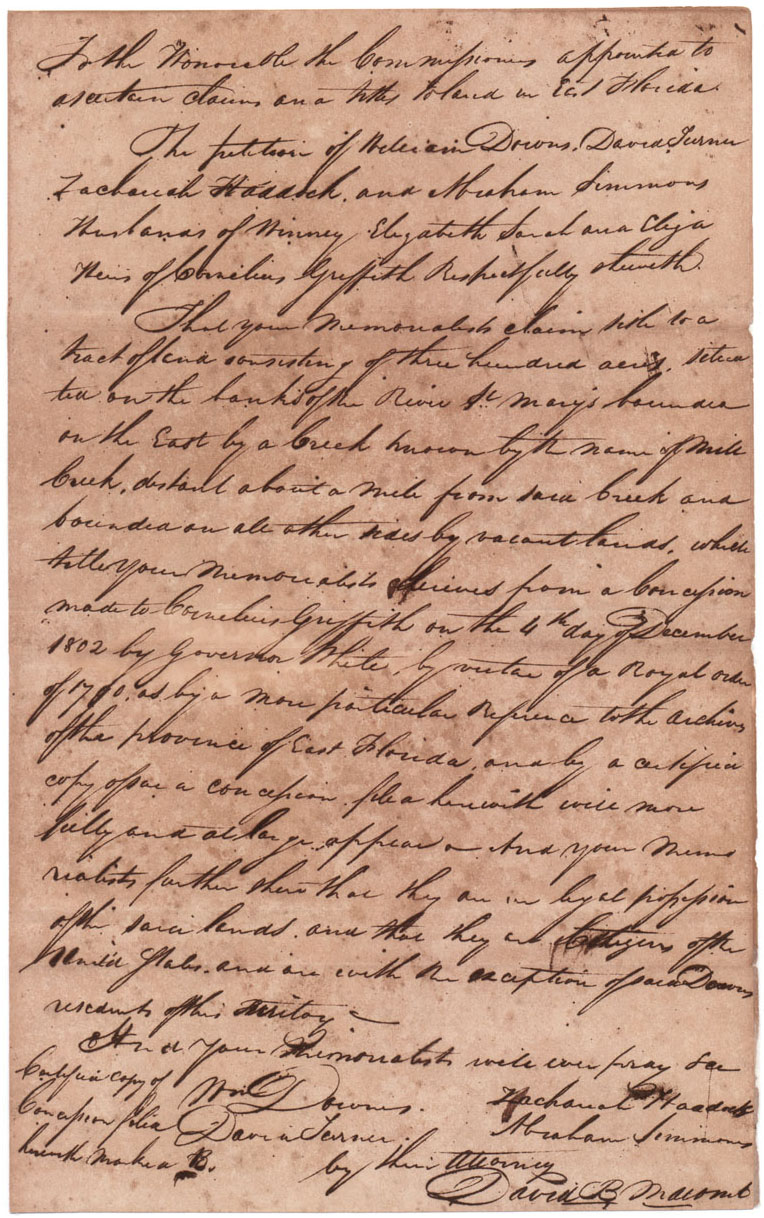 To the Honorable the Commissioners appointed to
ascertain claims and titles to land in East Florida.
The petition of William Downs, David Turner
Zachariah Haddock, and Abraham Simmons
Husbands of Winney Elizabeth Sarah and Eliza
Heirs of Cornelius Griffith Respectfully sheweth.
That your Memorialists claim title to a
tract of land consisting of three hundred acres, situa
ted on the banks of the River St. Mary's bounded
on the East by a Creek known by the name of Mill
Creek, distant about a mile from said Creek and
bounded on all other sides by vacant lands, which
title your Memorialists derives from a Concession
made to Cornelius Griffith on the 4th day of December
1802 by Governor White, by virtue of a Royal order
of 1790, as by a more particular Reference to the archives
of the province of East Florida, and by a certified
copy of said concession filed herewith will more
fully and at large appear – And your Memo
rialists further shew that they are in legal possession
of the said lands, and that they are Citizens of the
United States, and are with the exception of said Downs
residents of this territory –
And your Memorialists will ever pray &c
Certified copy of Wm Downs. Zachariah Haddock
Concession filed David Turner Abraham Simmons
herewith marked B. by their Attorney
David B Macomb